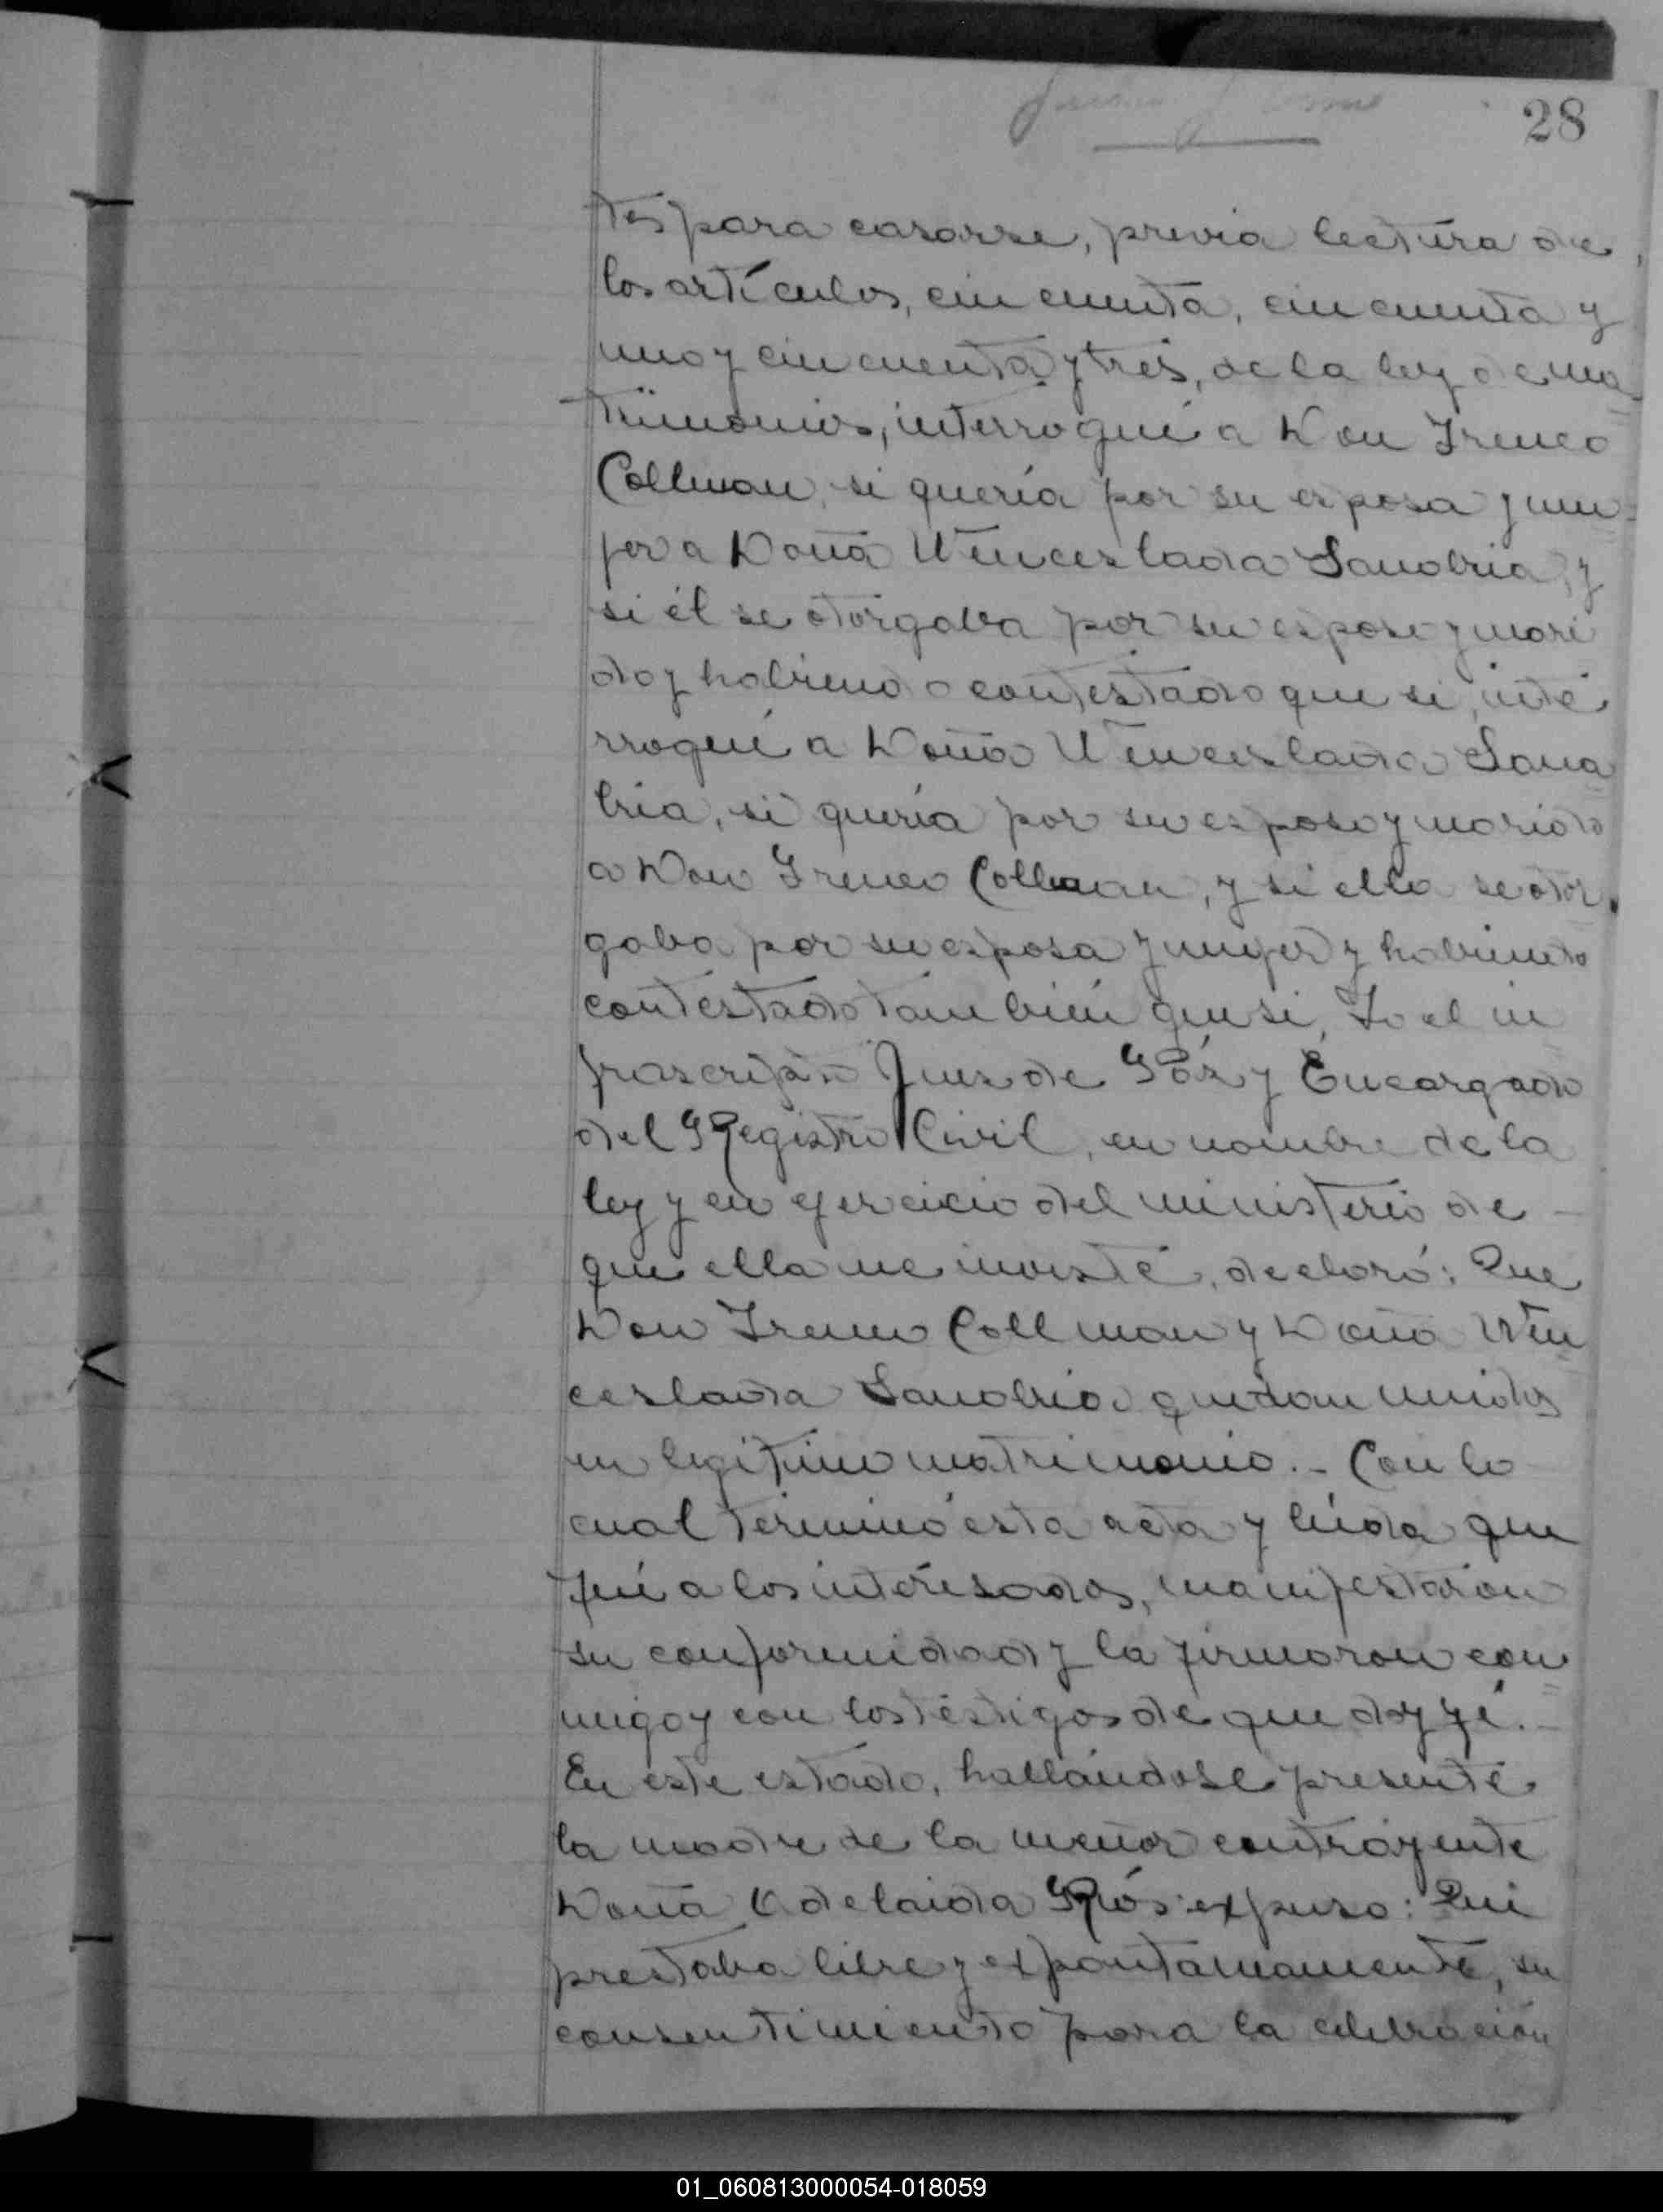 28
tes para casarse, previa lectura de
los artículos, cincuenta, cincuenta y
uno y cincuenta y tres, de la ley de ma-
trimonios, interrogué a Don Ireneo
Collman, si quería por su esposa y mu-
jer a Doña Wenceslada Sanabria, y
si él se otorgaba por su esposo y mari
do y habiendo contestado que si, inte
rrogué a Doña Wenceslada Sana
bria, si quería por su esposo y marido
a Don Ireneo Collman, y si ella se otor
gaba por su esposa y mujer y habiendo
contestado también que si, Yo el in
frascripto Juez de Páz y Encargado
del Registro Civil, en nombre de la
ley y en ejercicio del ministerio de
que ella me inviste, declaró: Que
Don Ireneo Collman y Doña Wen
ceslada Sanabria quedan unidos
en legítimo matrimonio.- Con lo
cual terminó esta acta y leída que
fué a los interesados, manifestaron
su conformidad y la firmaron con
migo y con los testigos de que doy fé.-
En este estado, hallándose presente
la madre de la menor contrayente
Doña Adelaida expuso: Que
prestaba libre y expontaneamente, su
consentimiento para la celebración
01_060813000054-018059